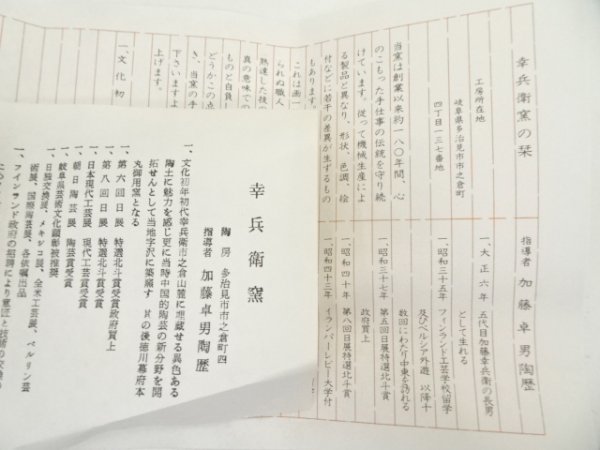 幸兵衛窯の栞
工房所在地
岐阜県多治見市市之倉町
四丁目一三七番地
当窯は創業以来約一八〇年間、心
のこもった手仕事の伝統を守り続
けています。従って機械生産によ
る製品と異なり、形状、色調、絵
付などに若干の差異が生ずるもの
もあります。
これは画一
られぬ職人
熟達した技の
真の意味での
ものと自負し
どうかこの点
き、当窯の手
下さいますよ
上げます。
一、文化初
指導者 加藤卓男陶歴
一、大正六年 五代目加藤幸兵衛の長男
として生れる
一、昭和三十五年 フィンランド工芸学校留学
及びペルシア外遊 以降十
数回にわたり中東を訪れる
一、昭和三十七年 第五回日展特選北斗賞
政府買上
一、昭和四十年 第八回日展特選北斗賞
一、昭和四十三年 イランパーレビー大学付
幸兵衛窯
陶房 多治見市市之倉町四
指導者 加藤卓男陶歴
一、文化初年初代幸兵衛市之倉山麓に埋蔵せる異色ある
陶土に魅力を感じ更に当時中国的陶芸の新分野を開
拓せんとして当地字沢に築窯す 其の後徳川幕府本
丸御用窯となる
一、第六回日展 特選北斗賞受賞
一、第八回日展 特選北斗賞受賞政府買上
一、日本現代工芸展 現代工芸賞受賞
一、朝日陶芸展 陶芸賞受賞
一、岐阜県芸術文化顕彰被推薦
一、日独交換展、メキシコ展、全米工芸展、ベルリン芸
術展、国際陶芸展、各依嘱出品
一、フィンランド政府の招聘により意匠と技術の交換の